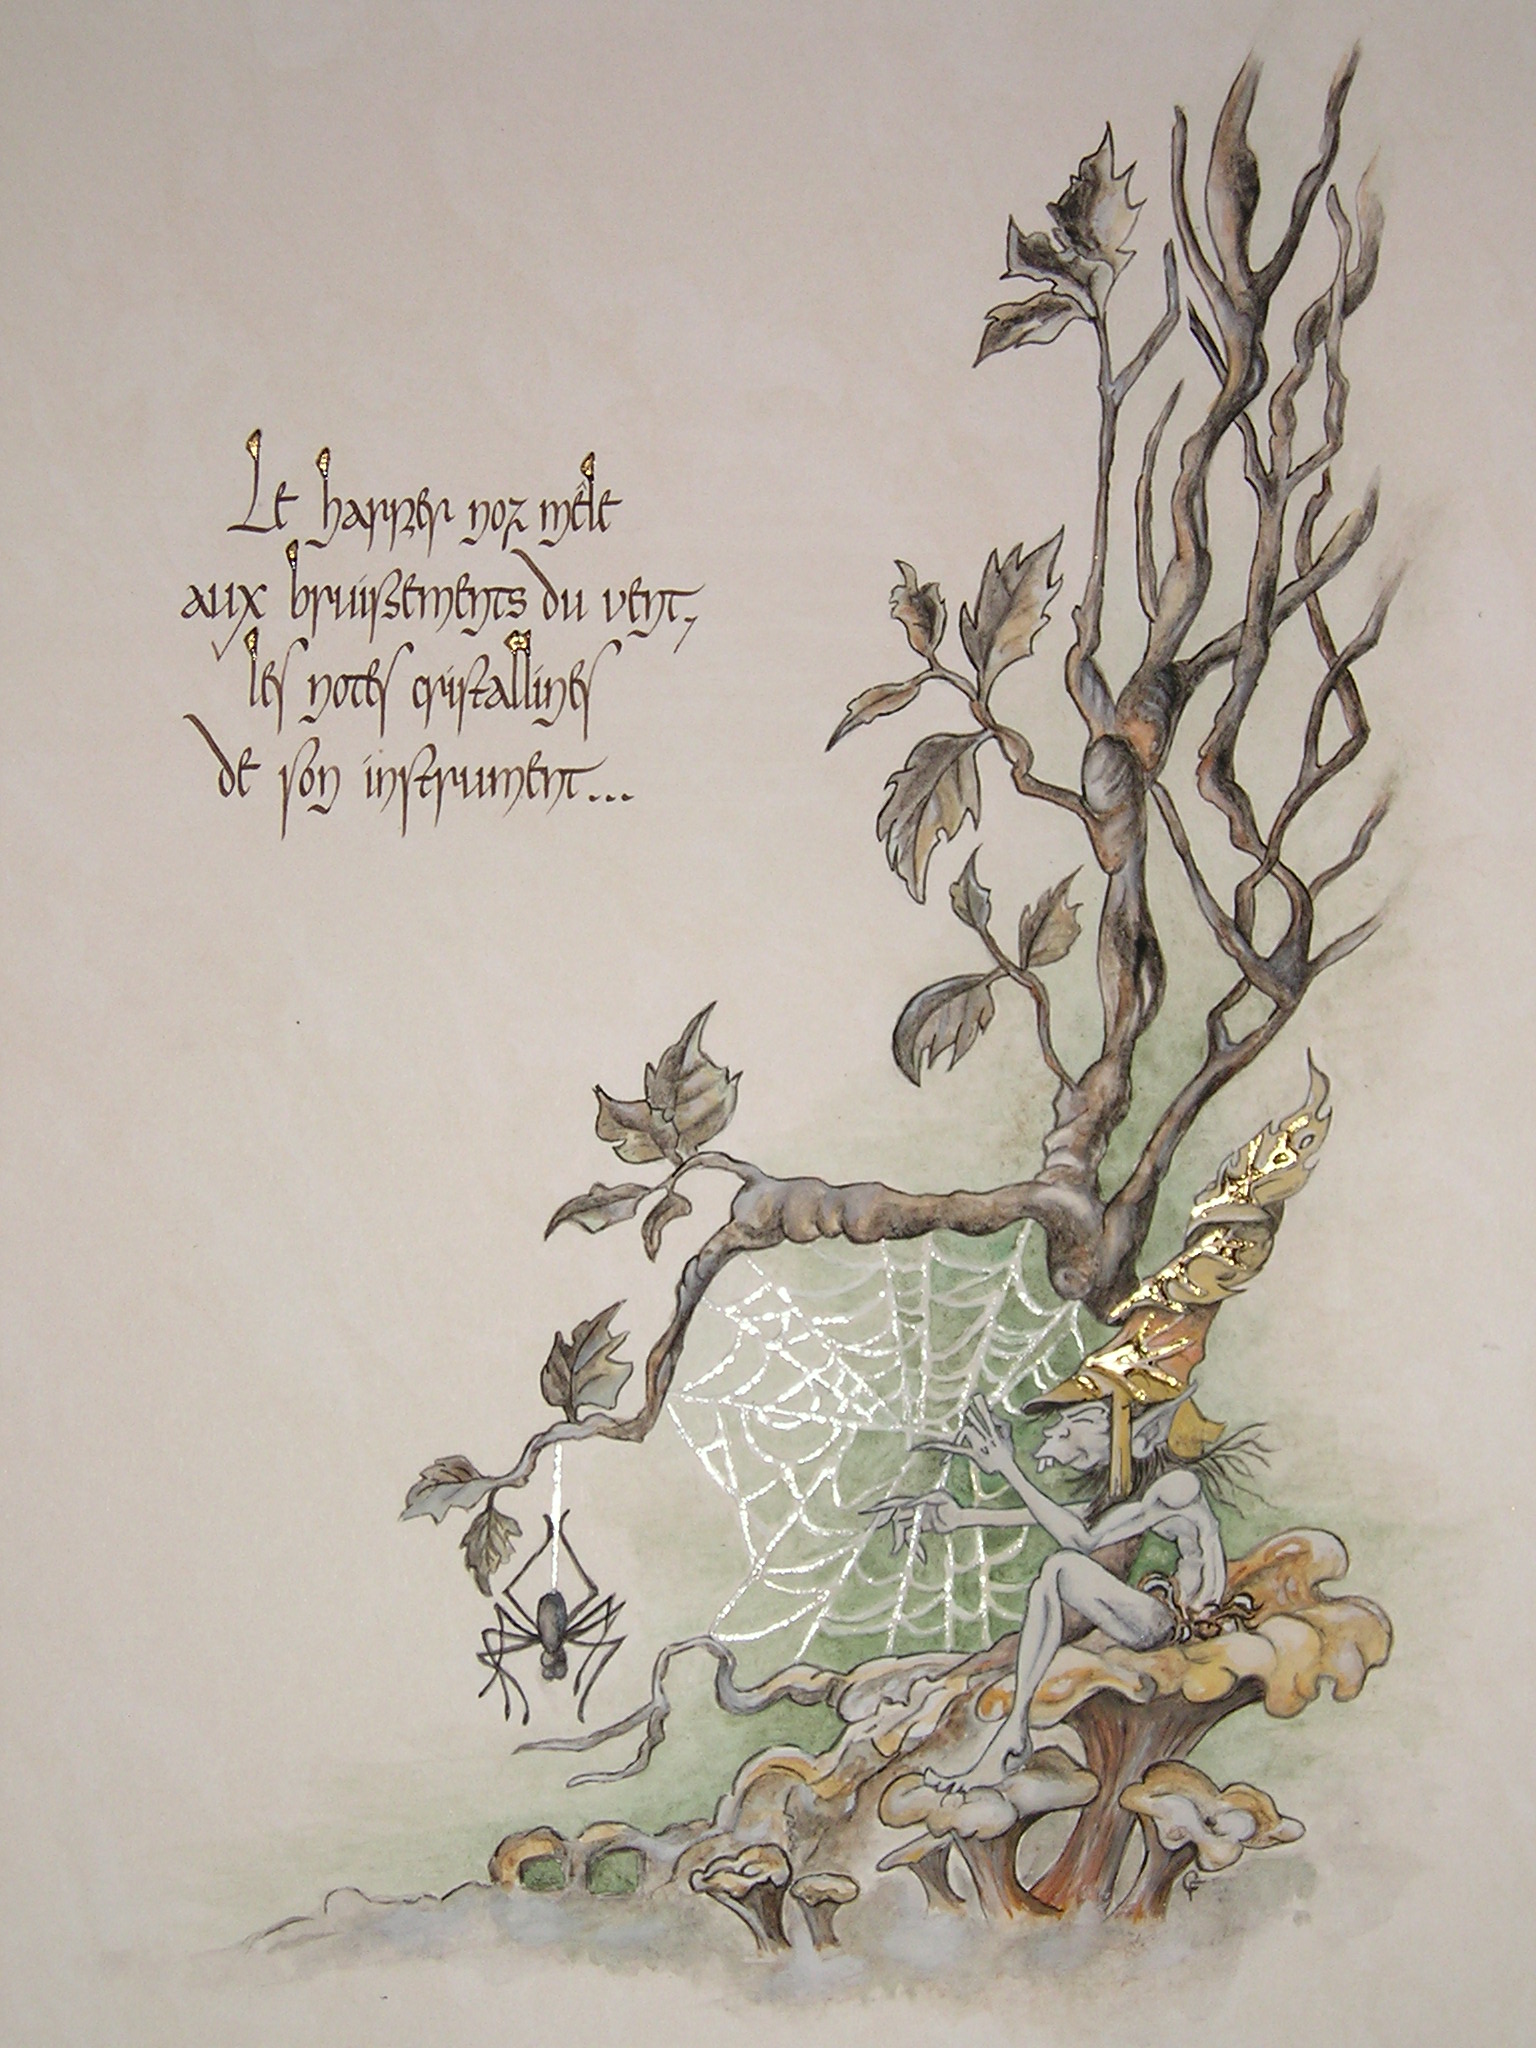 Le harper noz mêle
aux bruissements du vent,
les notes cristallines
de son instrument...